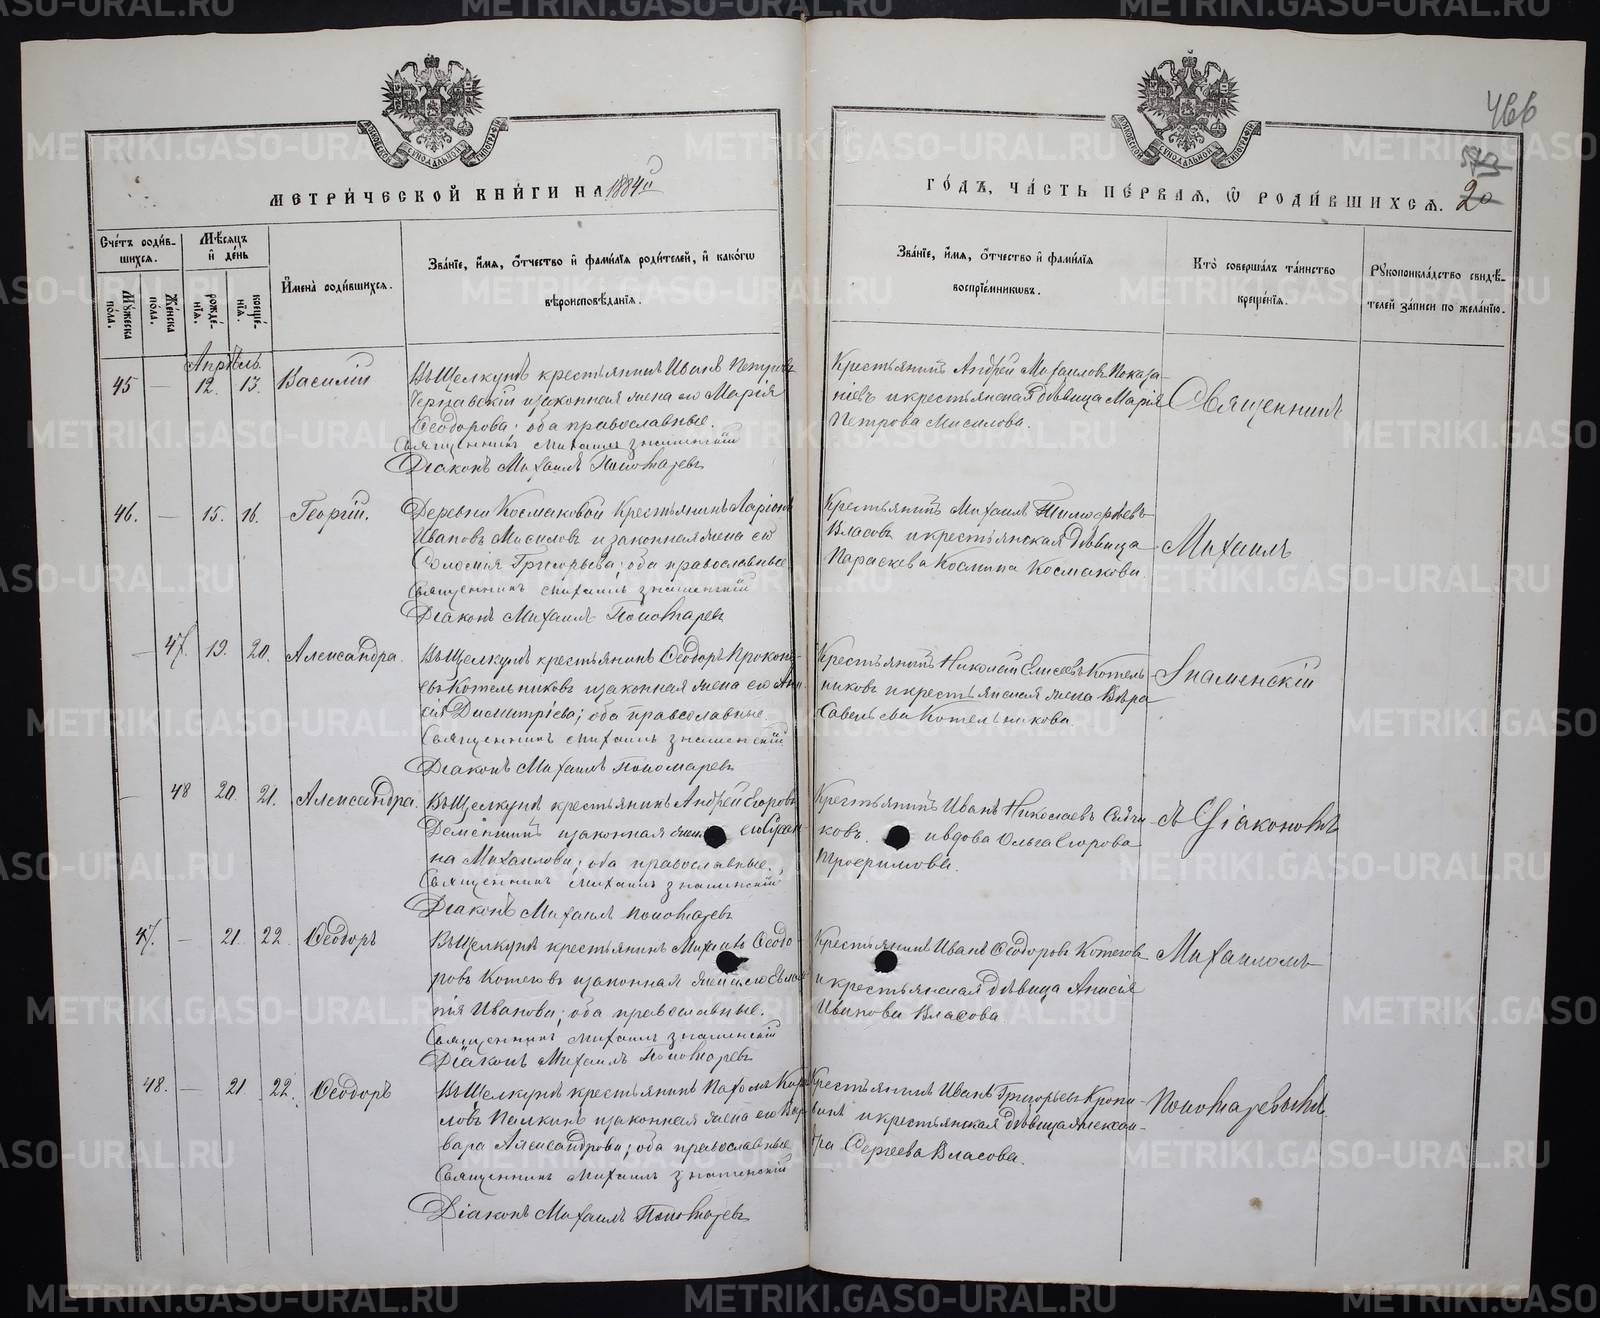 466
МЕТРИ́ЧЕСКОЙ КНИ́ГИ НА 1884й
ГО́ДЪ, ЧА́СТЬ ПЕ́РВАЯ, Ѡ РОДИ́ВШИХСЯ. 20
Сче́тъ роди́в-
шихся.
Му́жеска по́ла.
Же́нска по́ла.
Мѣ́сяцъ и де́нь
рожде́-нїя.
креще́-нїя.
И҆мена̀ роди́вшихся.
Зва́нїе, и҆́мя, ѻ҆́тчество и҆ фами́лїя роди́телей, и҆ како́гѡ
вѣроисповѣ́данїя.
Зва́нїе, и҆́мя, ѻ҆́тчество и҆ фами́лїя
воспрїе́мникѡвъ.
Кто̀ соверша́лъ та́инство
креще́нїя.
Рꙋкоприкла́дство свидѣ́-
телей за́писи по жела́нїю.
Апрѣль
45 — 12. 13. Василій
Въ Щелкунѣ крестьянинъ Иванъ Петровъ
Чернавскій и законная жена его Марія
Ѳеодорова; оба православные.
Священникъ Михаилъ Знаменскій
Діаконъ Михаилъ Пономаревъ
Крестьянинъ Андрей Михаиловъ Показа-
ніевъ и крестьянская дѣвица Марія
Петрова Мисилова.
Священникъ
46. — 15. 16. Георгій.
Деревни Космаковой Крестьянинъ Ларіонъ
Ивановъ Мисиловъ и законная жена его
Соломія Григорьева; оба православные
Священникъ Михаилъ Знаменскій
Діаконъ Михаилъ Пономаревъ
Крестьянинъ Михаилъ Тимоѳѣевъ
Власовъ и крестьянская дѣвица
Параскева Космина Космакова.
Михаилъ
— 47. 19. 20. Александра.
Въ Щелкунѣ крестьянинъ Ѳеодоръ Прокопь-
евъ Котельниковъ и законная жена его Ани-
сія Димитріева; оба православные.
Священникъ Михаилъ Знаменскій
Діаконъ Михаилъ Пономаревъ
Крестьянинъ Николай Елисеевъ Котель-
никовъ и крестьянская жена Вѣра
Савельева Котельникова.
Знаменскій
— 48 20. 21. Александра.
Въ Щелкунѣ крестьянинъ Андрей Егоровъ
законная его Сусан-
на Михаилова; оба православные.
Священникъ Михаилъ Знаменскій
Діаконъ Михаилъ Пономаревъ
Крестьянинъ Иванъ Николаевъ
ковъ и вдова Ольга Егорова
Трофимова.
съ Діакономъ
47. — 21. 22. Ѳеодоръ
Въ Щелкунѣ крестьянинъ Михаилъ Ѳеодо-
ровъ Котеговъ и законная жена его Евлам-
пія Иванова; оба православные.
Священникъ Михаилъ Знаменскій
Діаконъ Михаилъ Пономаревъ
Крестьянинъ Иванъ Ѳеодоровъ Котеговъ
и крестьянская дѣвица Анисія
Иванова Власова
Михаиломъ
48. — 21 22. Ѳеодоръ
Въ Щелкунѣ крестьянинъ Пахомъ Кари-
ловъ Палкинъ и законная жена его Вар-
вара Александрова; оба православные
Священникъ Михаилъ Знаменскій
Діаконъ Михаилъ Пономаревъ
Крестьянинъ Иванъ Григорьевъ Кропи-
винъ и крестьянская дѣвица Алексан-
дра Сергеева Власова.
Пономаревымъ
METRIKI.GASO-URAL.RU